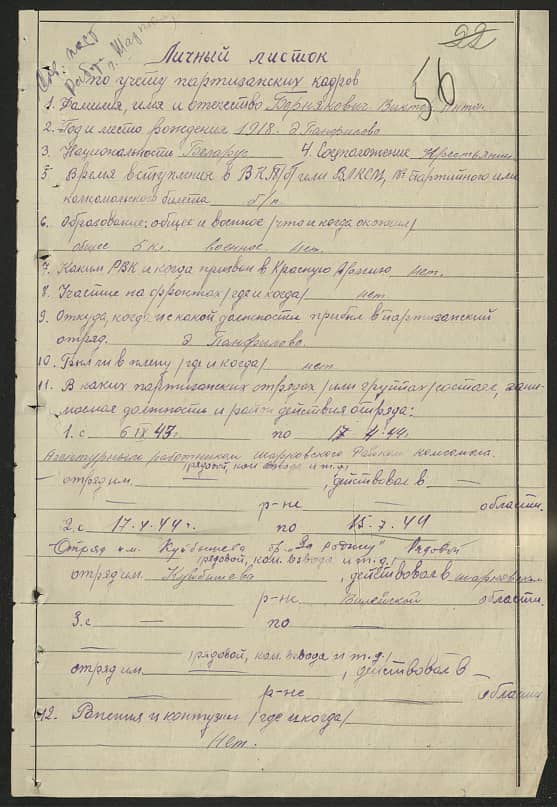 22
56
Личный листок
по учету партизанских кадров
1. Фамилия, имя и отчество Борнякович Виктор Антон.
2. Год и место рождения 1918. д Панфилово
3. Национальность Беларус 4. Соцположение Крестьянин
5 Время вступления в ВКП/б/ или ВЛКСМ, № партийного или
комсомольского билета б/п.
6. Образование: общее и военное /что и когда окончил/
общее 5 кл. военное нет.
7. Каким РВК и когда призван в Красную Армию нет.
8. Участие на фронтах /где и когда/ нет.
9. Откуда, когда и с какой должности прибыл в партизанский
отряд. д Панфилово.
10. Был ли в плену /где и когда/ нет.
11. В каких партизанских отрядах /или группах/ состоял, зани-
маемая должность и район действия отряда:
1. с 6 IX 43г по 17 4.44.
Агентурным работником шарковского Райком комсомола.
/рядовой, ком. взвода и т.д./
— отряд им. — , действовал в —
— р-не — области.
2. с 17.4.44г. по 15.7.44
Отряд им. Куйбышева бр. "За Родину" Рядовой
/рядовой, ком. взвода и т.д./
отряд им. Куйбышева , действовал в шарковском
р-не Вилейской области.
3. с — по —
/рядовой, ком. взвода и т.д./
отряд им. — , действовал в —
— р-не — области
12. Ранения и контузии /где и когда/
Нет.